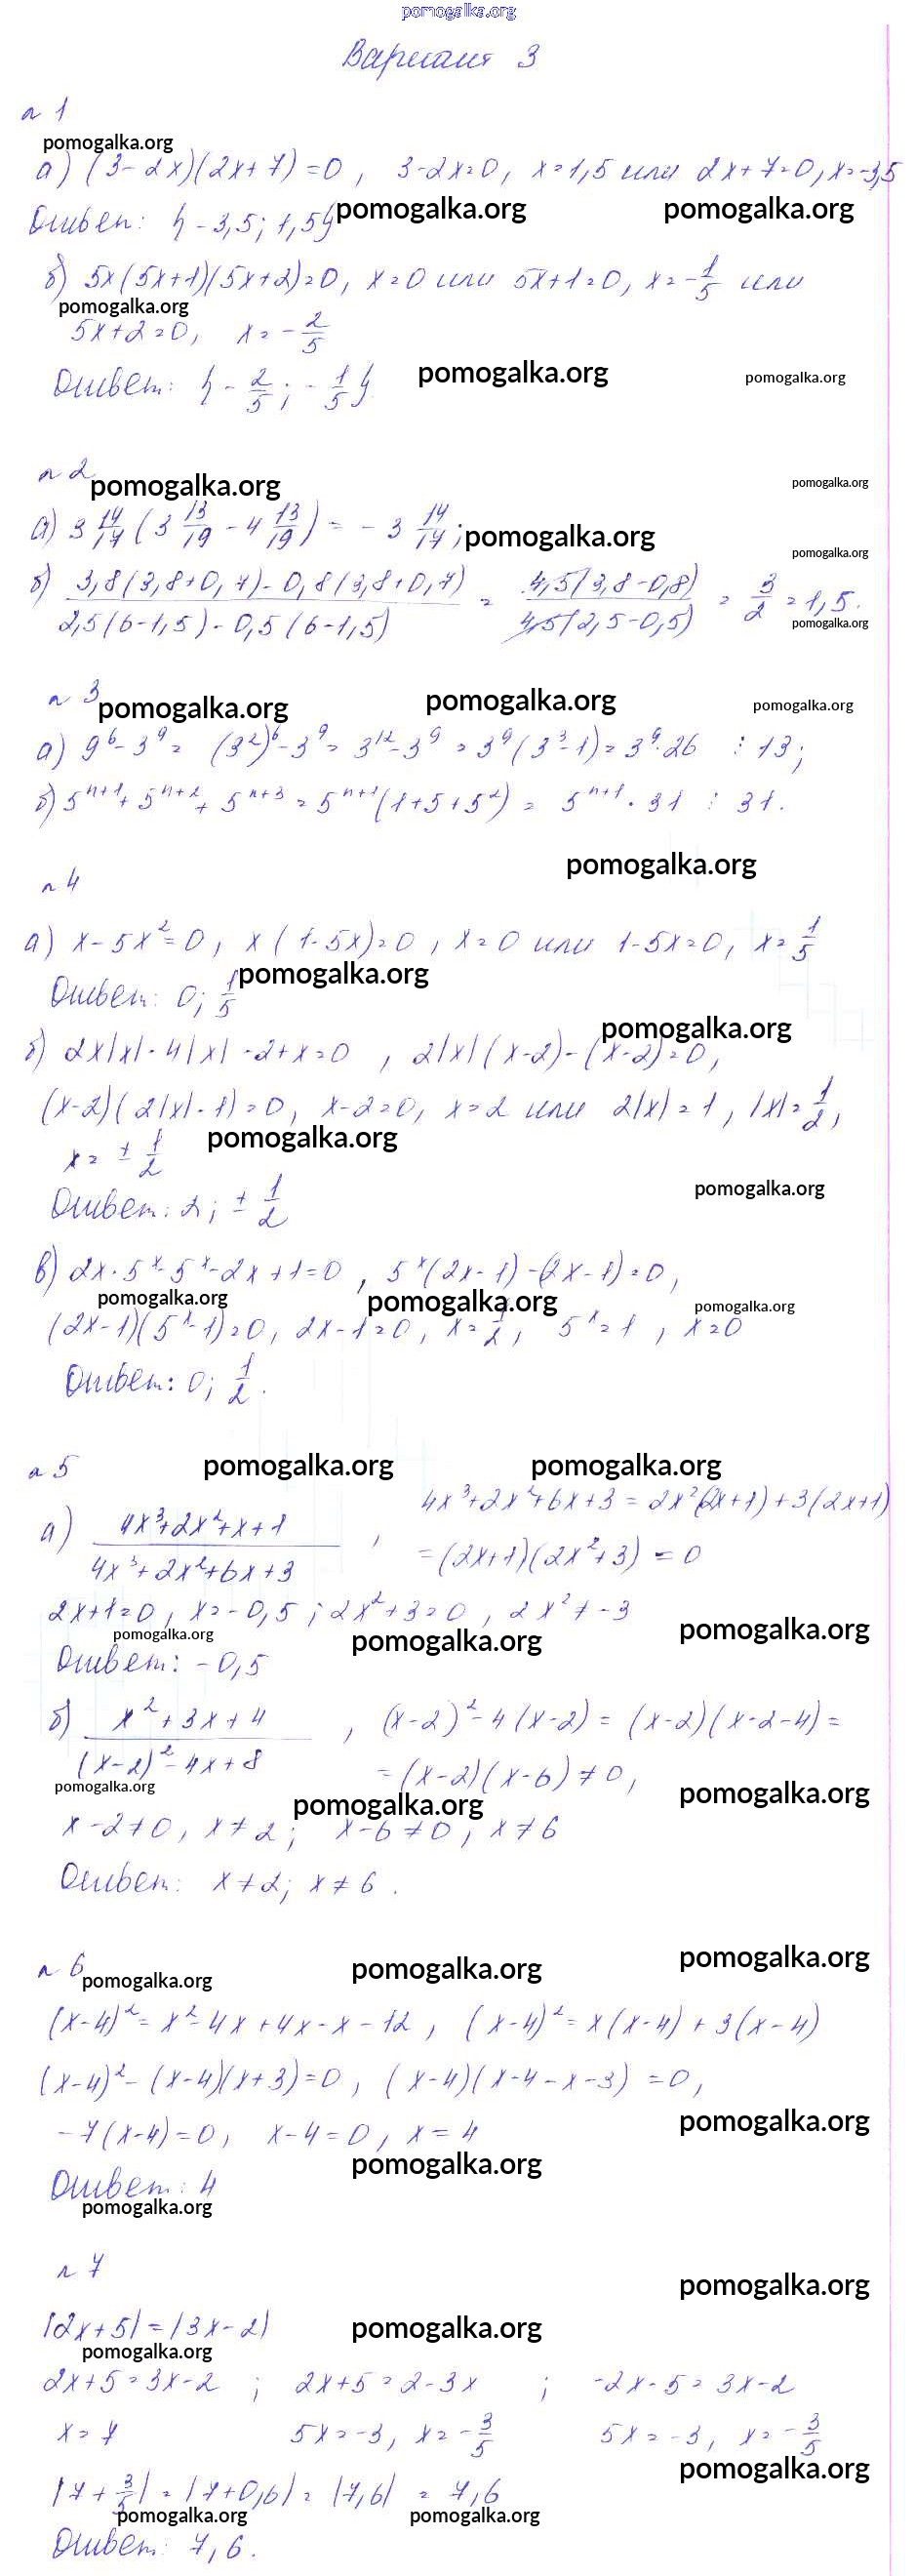 pomogalka.org
Вариант 3
№ 1
pomogalka.org
а) (3-2x)(2x+7)=0, 3-2x=0, x=1,5 или 2x+7=0, x=-3,5
Ответ: {-3,5; 1,5}
pomogalka.org pomogalka.org
б) 5x(5x+1)(5x+2)=0, x=0 или 5x+1=0, x=-1/5 или
pomogalka.org
5x+2=0, x=-2/5
Ответ: {-2/5; -1/5}
pomogalka.org pomogalka.org
№ 2
pomogalka.org pomogalka.org
а) 3 14/17 (3 13/19 - 4 13/19) = -3 14/17;
pomogalka.org pomogalka.org
б) 3,8(3,8+0,7)-0,8(3,8+0,7) / 2,5(6-1,5)-0,5(6-1,5) = 4,5(3,8-0,8) / 4,5(2,5-0,5) = 3/2 = 1,5.
pomogalka.org
№ 3
pomogalka.org pomogalka.org pomogalka.org
а) 9⁶-3⁹= (3²)⁶-3⁹= 3¹²-3⁹ = 3⁹(3³-1)= 3⁹·26 ⋮ 13;
б) 5ⁿ⁺¹+5ⁿ⁺²+5ⁿ⁺³=5ⁿ⁺¹(1+5+5²)= 5ⁿ⁺¹·31 ⋮ 31.
pomogalka.org
№ 4
а) x-5x²=0, x(1-5x)=0, x=0 или 1-5x=0, x=1/5
Ответ: 0; 1/5
pomogalka.org
pomogalka.org
б) 2x|x|-4|x|-2+x=0, 2|x|(x-2)-(x-2)=0,
(x-2)(2|x|-1)=0, x-2=0, x=2 или 2|x|=1, |x|=1/2,
x=±1/2
pomogalka.org
pomogalka.org
Ответ: 2; ±1/2
в) 2x·5ˣ-5ˣ-2x+1=0, 5ˣ(2x-1)-(2x-1)=0,
pomogalka.org pomogalka.org pomogalka.org
(2x-1)(5ˣ-1)=0, 2x-1=0, x=1/2, 5ˣ=1, x=0
Ответ: 0; 1/2.
№ 5
pomogalka.org pomogalka.org
а) 4x³+2x²+x+1 / 4x³+2x²+6x+3, 4x³+2x²+6x+3=2x²(2x+1)+3(2x+1)
=(2x+1)(2x²+3)=0
2x+1=0, x=-0,5; 2x²+3=0, 2x²≠-3
pomogalka.org pomogalka.org pomogalka.org
Ответ: -0,5
б) x²+3x+4 / (x-2)²-4x+8, (x-2)²-4(x-2)=(x-2)(x-2-4)=
=(x-2)(x-6)≠0,
pomogalka.org pomogalka.org pomogalka.org
x-2≠0, x≠2; x-6≠0, x≠6
Ответ: x≠2; x≠6.
№ 6
pomogalka.org pomogalka.org pomogalka.org
(x-4)²=x²-4x+4x-x-12, (x-4)²=x(x-4)+3(x-4)
(x-4)²-(x-4)(x+3)=0, (x-4)(x-4-x-3)=0,
pomogalka.org
-7(x-4)=0, x-4=0, x=4
pomogalka.org
Ответ: 4
pomogalka.org
№ 7
pomogalka.org
|2x+5|=|3x-2|
pomogalka.org
pomogalka.org
2x+5=3x-2; 2x+5=2-3x; -2x-5=3x-2
x=7 5x=-3, x=-3/5 5x=-3, x=-3/5
pomogalka.org
|7+3/5|=|7+0,6|=|7,6|=7,6
pomogalka.org pomogalka.org
Ответ: 7,6.